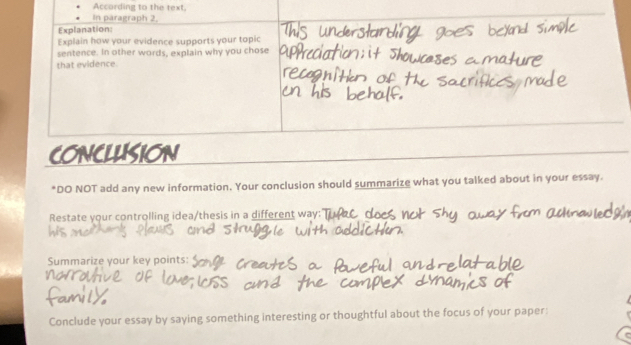 • According to the text,
• In paragraph 2,
Explanation:
Explain how your evidence supports your topic
sentence. In other words, explain why you chose
that evidence.
This understanding goes beyond simple
appreciation; it showcases a mature
recognition of the sacrifices made
on his behalf.
CONCLUSION
*DO NOT add any new information. Your conclusion should summarize what you talked about in your essay.
Restate your controlling idea/thesis in a different way: Tupac does not shy away from acknowledgin
his mother's flaws and struggle with addiction
Summarize your key points: Song creates a poweful and relatable
narrative of love, loss and the complex dynamics of
family.
Conclude your essay by saying something interesting or thoughtful about the focus of your paper: